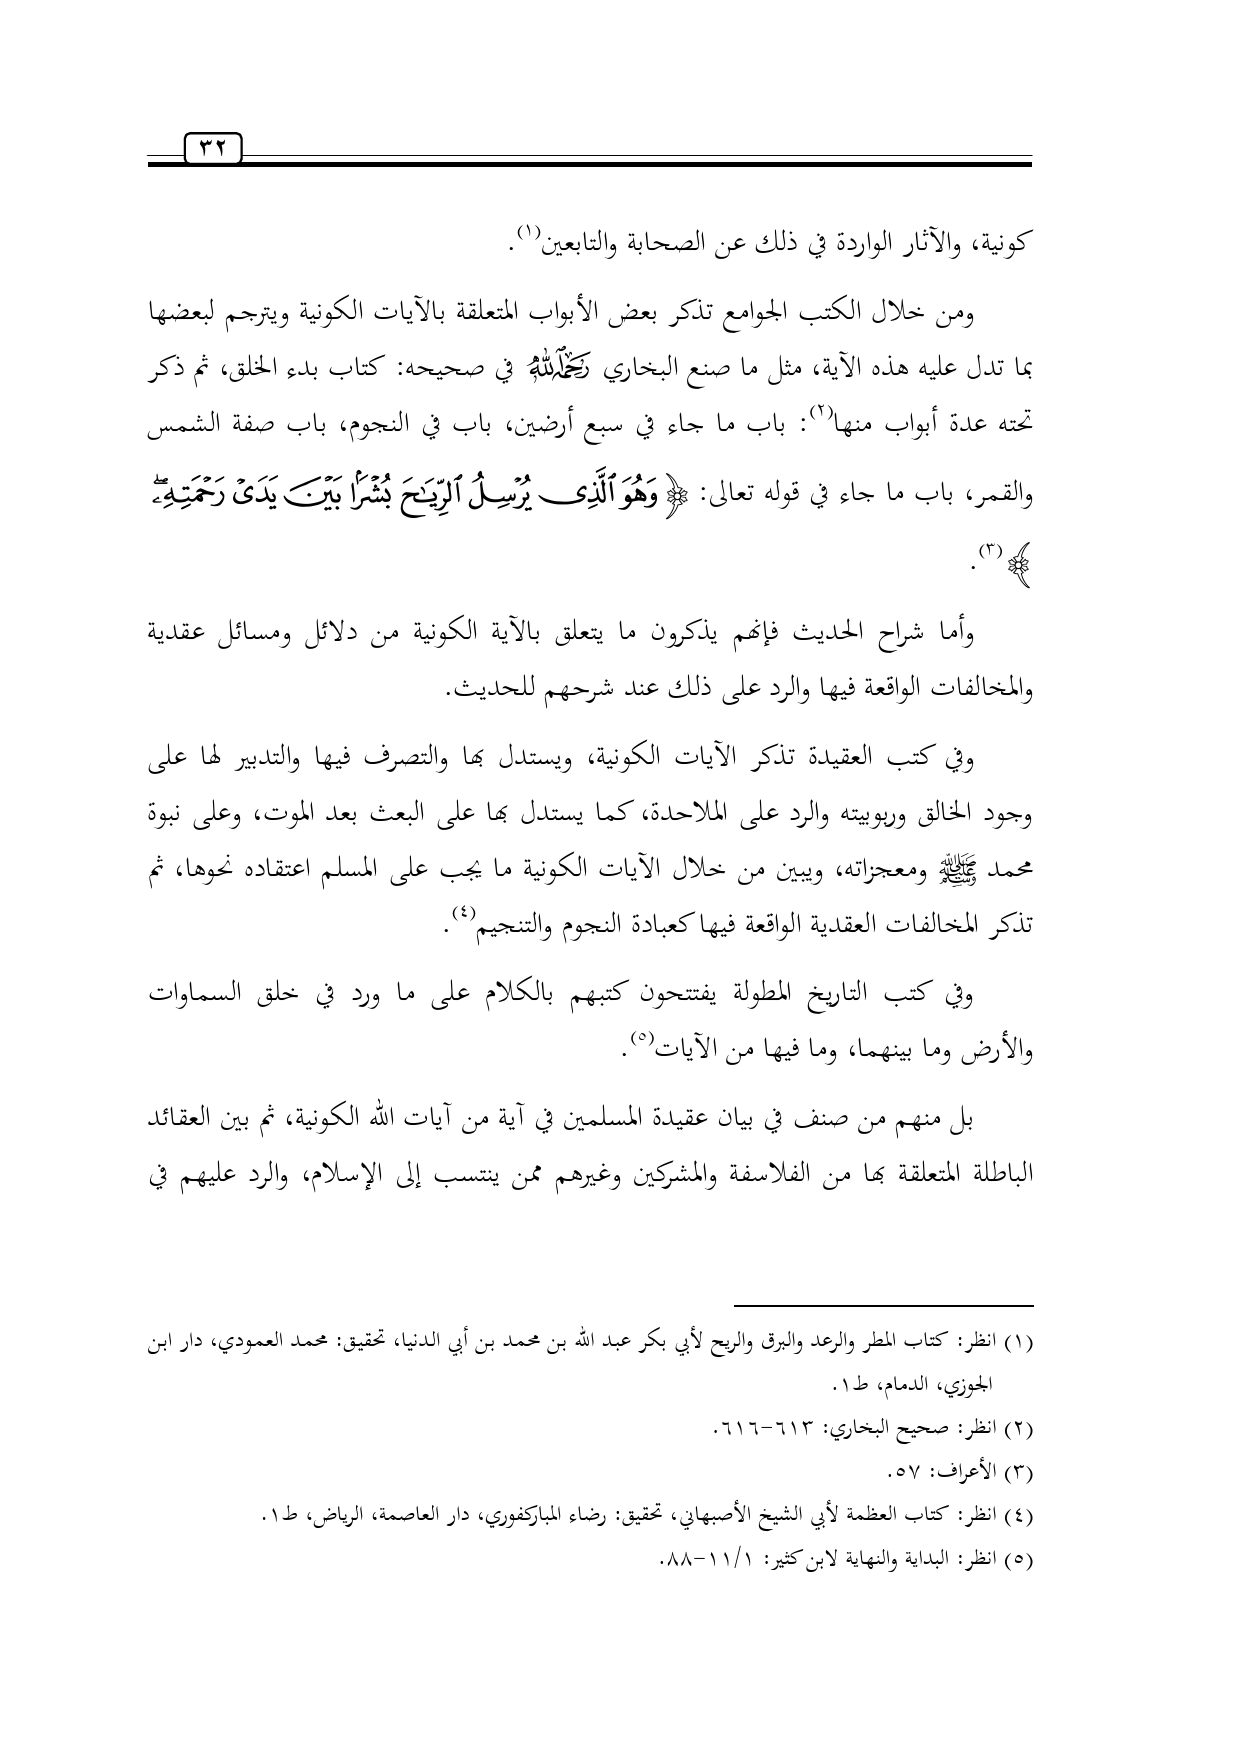 ٣٢
كونية، والآثار الواردة في ذلك عن الصحابة والتابعين(١).
ومن خلال الكتب الجوامع تذكر بعض الأبواب المتعلقة بالآيات الكونية ويترجم لبعضها
بما تدل عليه هذه الآية، مثل ما صنع البخاري رَحِمَهُ ٱللَّهُ في صحيحه: كتاب بدء الخلق، ثم ذكر
تحته عدة أبواب منها(٢): باب ما جاء في سبع أرضين، باب في النجوم، باب صفة الشمس
والقمر، باب ما جاء في قوله تعالى: ﴿ وَهُوَ ٱلَّذِى يُرْسِلُ ٱلرِّيَـٰحَ بُشْرًۢا بَيْنَ يَدَىْ رَحْمَتِهِۦۖ
﴾(٣).
وأما شراح الحديث فإنهم يذكرون ما يتعلق بالآية الكونية من دلائل ومسائل عقدية
والمخالفات الواقعة فيها والرد على ذلك عند شرحهم للحديث.
وفي كتب العقيدة تذكر الآيات الكونية، ويستدل بها والتصرف فيها والتدبير لها على
وجود الخالق وربوبيته والرد على الملاحدة، كما يستدل بها على البعث بعد الموت، وعلى نبوة
محمد ﷺ ومعجزاته، ويبين من خلال الآيات الكونية ما يجب على المسلم اعتقاده نحوها، ثم
تذكر المخالفات العقدية الواقعة فيها كعبادة النجوم والتنجيم(٤).
وفي كتب التاريخ المطولة يفتتحون كتبهم بالكلام على ما ورد في خلق السماوات
والأرض وما بينهما، وما فيها من الآيات(٥).
بل منهم من صنف في بيان عقيدة المسلمين في آية من آيات الله الكونية، ثم بين العقائد
الباطلة المتعلقة بها من الفلاسفة والمشركين وغيرهم ممن ينتسب إلى الإسلام، والرد عليهم في
(١) انظر: كتاب المطر والرعد والبرق والريح لأبي بكر عبد الله بن محمد بن أبي الدنيا، تحقيق: محمد العمودي، دار ابن
الجوزي، الدمام، ط١.
(٢) انظر: صحيح البخاري: ٦١٣-٦١٦.
(٣) الأعراف: ٥٧.
(٤) انظر: كتاب العظمة لأبي الشيخ الأصبهاني، تحقيق: رضاء المباركفوري، دار العاصمة، الرياض، ط١.
(٥) انظر: البداية والنهاية لابن كثير: ١١/١-٨٨.